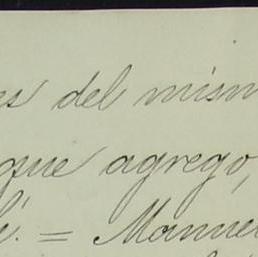 es del mism
que agrego,
é. = Manuel